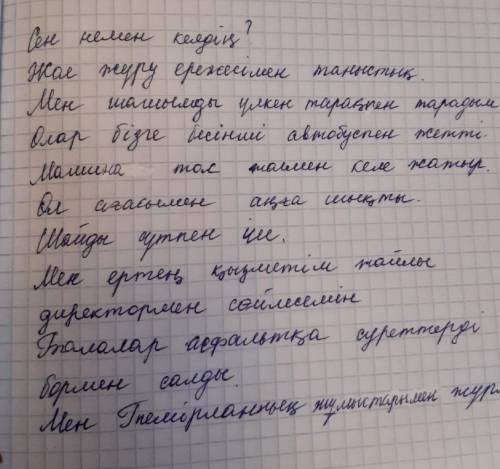 Сен немен келдің?
Жол жүру ережесімен таныстық.
Мен шашымды үлкен тарақпен тарадым
Олар бізге бесінші автобуспен жетті.
Машина тас жолмен келе жатыр.
Ол ағасымен аңға шықты.
Шайды сүтпен іш.
Мен ертең қызметім жайлы
директормен сөйлесемін
Балалар асфальтқа суреттерді
бормен салды.
Мен Темірланның жұмыстарымен